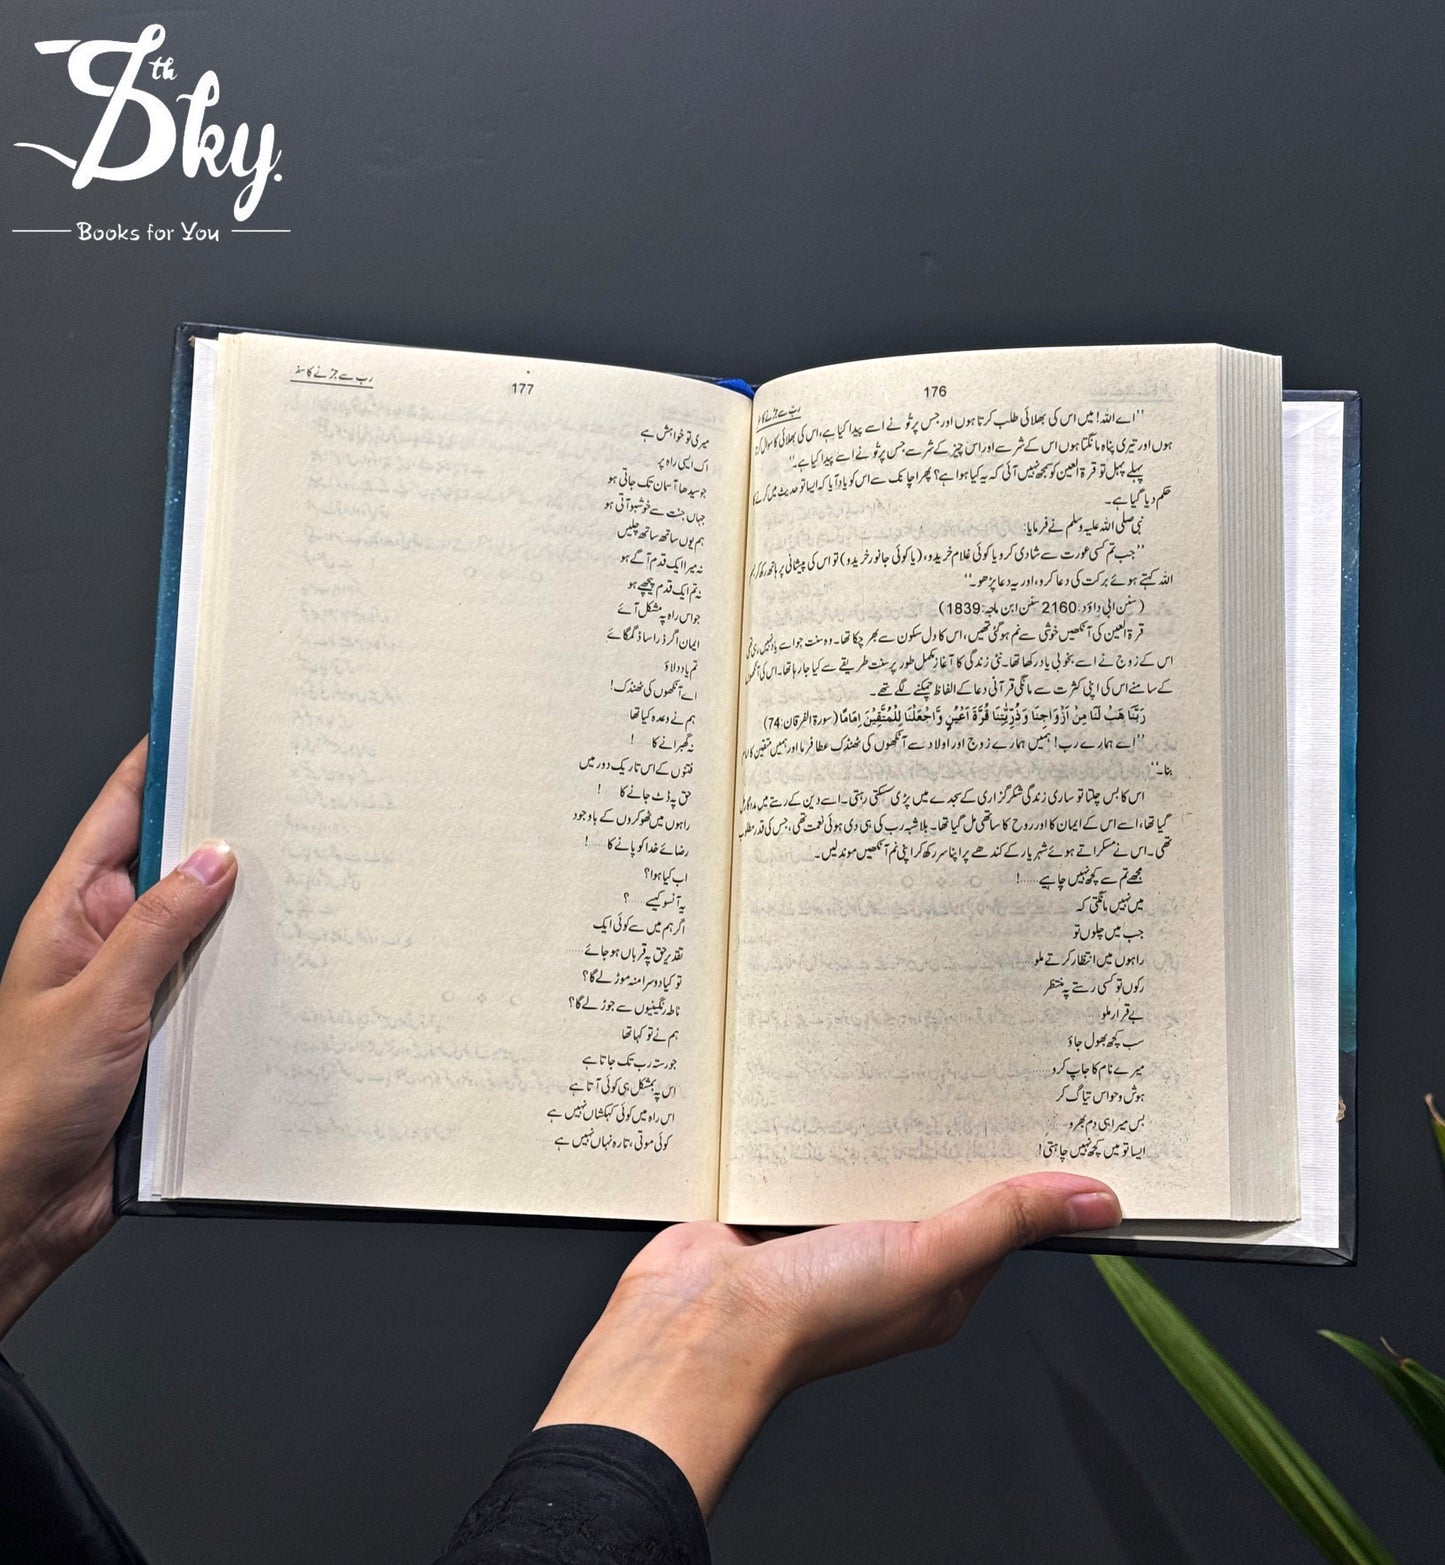 8th Sky.
Books for You
176
رب سے جڑنے کا
’’اے اللہ! میں اس کی بھلائی طلب کرتا ہوں اور جس پر تُو نے اسے پیدا کیا ہے، اس کی بھلائی کا سوال کرتا
ہوں اور تیری پناہ مانگتا ہوں اس کے شر سے اور اس چیز کے شر سے جس پر تُو نے اسے پیدا کیا ہے۔‘‘
پہلے پہل تو قرۃ العین کو سمجھ نہیں آئی کہ یہ کیا ہوا ہے؟ پھر اچانک سے اس کو یاد آیا کہ ایسا تو حدیث میں کرنے کا
حکم دیا گیا ہے۔
نبی صلی اللہ علیہ وسلم نے فرمایا:
’’جب تم کسی عورت سے شادی کرو یا کوئی غلام خریدو، (یا کوئی جانور خریدو) تو اس کی پیشانی پر ہاتھ رکھ کر بسم
اللہ کہتے ہوئے برکت کی دعا کرو، اور یہ دعا پڑھو۔‘‘
(سنن ابی داؤد: 2160 سنن ابن ماجہ: 1839)
قرۃ العین کی آنکھیں خوشی سے نم ہو گئی تھیں، اس کا دل سکون سے بھر چکا تھا۔ وہ سنت جو اسے یاد نہیں رہی تھی
اس کے زوج نے اسے بخوبی یاد رکھا تھا۔ نئی زندگی کا آغاز مکمل طور پر سنت طریقے سے کیا جا رہا تھا۔ اس کی آنکھوں
کے سامنے اس کی اپنی کثرت سے مانگی قرآنی دعا کے الفاظ چمکنے لگے تھے۔
رَبَّنَا هَبْ لَنَا مِنْ اَزْوَاجِنَا وَذُرِّيّٰتِنَا قُرَّةَ اَعْيُنٍ وَّاجْعَلْنَا لِلْمُتَّقِيْنَ اِمَامًا (سورۃ الفرقان: 74)
’’اے ہمارے رب! ہمیں ہمارے زوج اور اولاد سے آنکھوں کی ٹھنڈک عطا فرما اور ہمیں متقین کا امام
بنا۔‘‘
اس کا بس چلتا تو ساری زندگی شکرگزاری کے سجدے میں پڑی سسکتی رہتی۔ اسے دین کے رستے میں مددگار مل
گیا تھا، اسے اس کے ایمان کا اور روح کا ساتھی مل گیا تھا۔ بلاشبہ رب کی ہی دی ہوئی نعمت تھی، جس کی قدر مطلوب
تھی۔ اس نے مسکراتے ہوئے شہریار کے کندھے پر اپنا سر رکھ کر اپنی نم آنکھیں موند لیں۔
مجھے تم سے کچھ نہیں چاہیے......!
میں نہیں مانگتی کہ
جب میں چلوں تو
راہوں میں انتظار کرتے ملو
رکوں تو کسی رستے پہ منتظر
بے قرار ملو......
سب کچھ بھول جاؤ
میرے نام کا جاپ کرو......
ہوش و حواس تیاگ کر
بس میرا ہی دم بھرو......
ایسا تو میں کچھ نہیں چاہتی!
177
رب سے جڑنے کا سفر
میری تو خواہش ہے
اک ایسی راہ پر
جو سیدھا آسمان تک جاتی ہو
جہاں جنت سے خوشبو آتی ہو
ہم یوں ساتھ ساتھ چلیں
نہ میرا ایک قدم آگے ہو
نہ تم ایک قدم پیچھے ہو
جو اس راہ پہ مشکل آئے
ایمان اگر ذرا سا ڈگمگائے
تم یاد دلاؤ
اے آنکھوں کی ٹھنڈک!
ہم نے وعدہ کیا تھا
نہ گھبرانے کا......!
فتنوں کے اس تاریک دور میں
حق پہ ڈٹ جانے کا......!
راہوں میں ٹھوکروں کے باوجود
رضائے خدا کو پانے کا......!
اب کیا ہوا؟
یہ آنسو کیسے......؟
اگر ہم میں سے کوئی ایک
تقدیرِ حق پہ قرباں ہو جائے......
تو کیا دوسرا منہ موڑ لے گا؟
ناطہ رنگینیوں سے جوڑ لے گا؟
ہم نے تو کہا تھا
جو رستہ رب تک جاتا ہے
اس پہ بمشکل ہی کوئی آتا ہے
اس راہ میں کوئی کہکشاں نہیں ہے
کوئی موتی، تارہ نہاں نہیں ہے